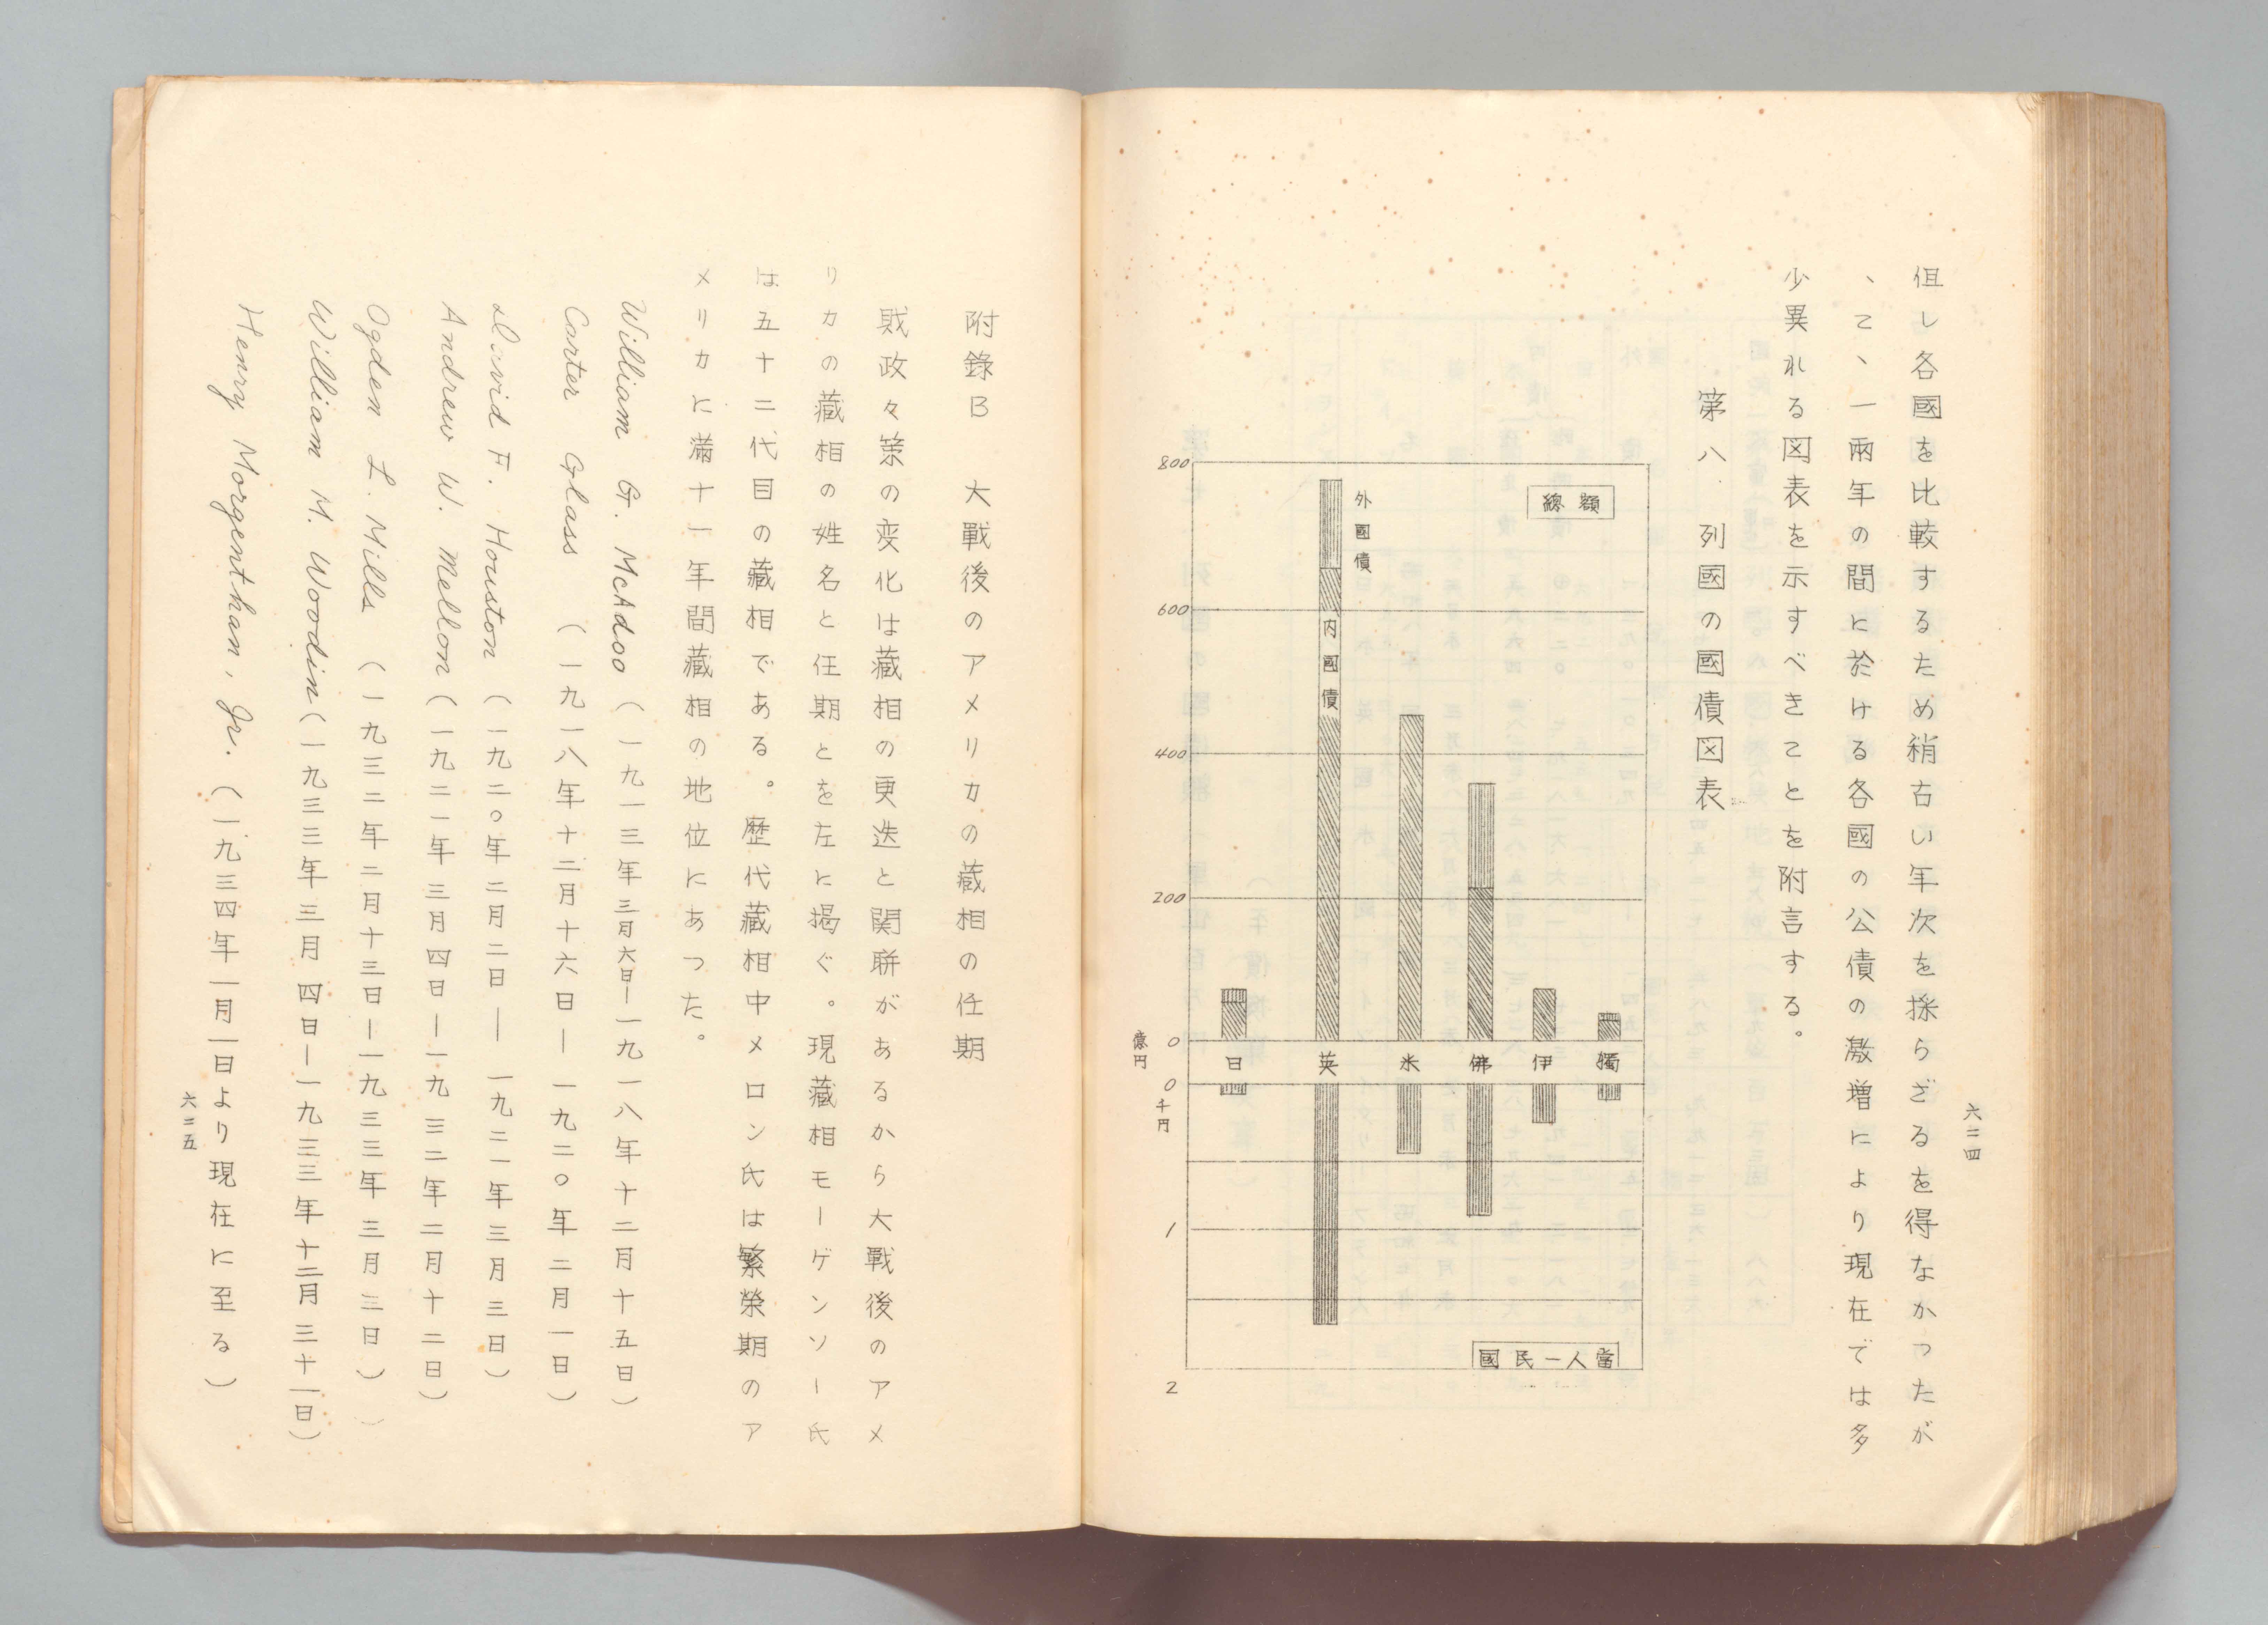 六二四
但し各國を比較するため稍古い年次を採らざるを得なかったが
、こゝ一兩年の間に於ける各國の公債の激増により現在では多
少異れる図表を示すべきことを附言する。
第八　列國の國債図表
總額
800
600
400
200
0
億円
外國債
内國債
日　英　米　佛　伊　獨
0
千円
1
2
國民一人當
附錄B　大戰後のアメリカの蔵相の任期
財政々策の変化は蔵相の更迭と関聯があるから大戰後のアメ
リカの蔵相の姓名と任期とを左に掲ぐ。現蔵相モーゲンソー氏
は五十二代目の蔵相である。歴代蔵相中メロン氏は繁榮期のア
メリカに満十一年間蔵相の地位にあった。
William G. McAdoo（一九一三年三月六日―一九一八年十二月十五日）
Carter Glass（一九一八年十二月十六日―一九二〇年二月一日）
David F. Houston（一九二〇年二月二日―一九二一年三月三日）
Andrew W. Mellon（一九二一年三月四日―一九三二年二月十二日）
Ogden L. Mills（一九三二年二月十三日―一九三三年三月三日）
William M. Woodin（一九三三年三月四日―一九三三年十二月三十一日）
Henry Morgenthan, Jr.（一九三四年一月一日より現在に至る）
六二五